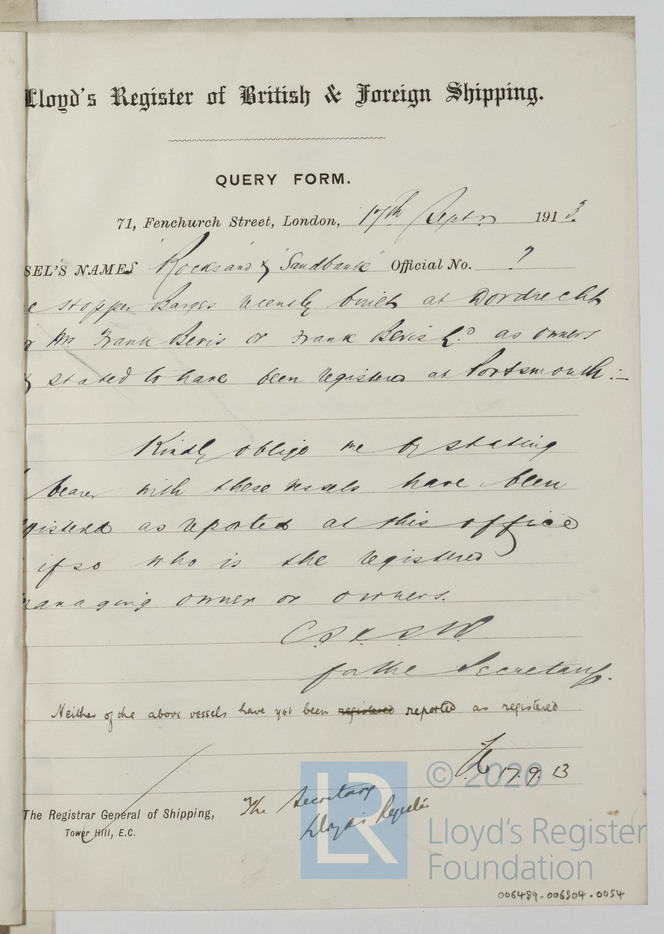 Lloyd's Register of British & Foreign Shipping.
QUERY FORM.
71, Fenchurch Street, London, 17th Septr 1913.
SEL'S NAMES "Rocksand" & "Sandbank" Official No. ?
e Hopper Barges recently built at Dordrecht
Mr Frank Bevis or Frank Bevis Ld as owners
& stated to have been registered at Portsmouth:—
Kindly oblige me by stating
bearer with these vessels have been
gistered as reported at this office
if so who is the registered
anaging owner or owners.
for the Secretary.
Neither of the above vessels have yet been registered reported as registered
17.9.13
The Registrar General of Shipping,
Tower Hill, E.C.
The Secretary
Lloyds Register
LR © 2020
Lloyd's Register
Foundation
006489-006504-0054